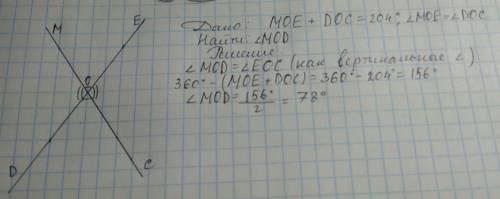 M E
O
D C
Дано: MOE + DOC = 204°, ∠MOE = ∠DOC
Найти: ∠MOD
Решение:
∠MOD = ∠EOC (как вертикальные ∠)
360° - (MOE + DOC) = 360° - 204° = 156°
∠MOD = 156°/2 = 78°